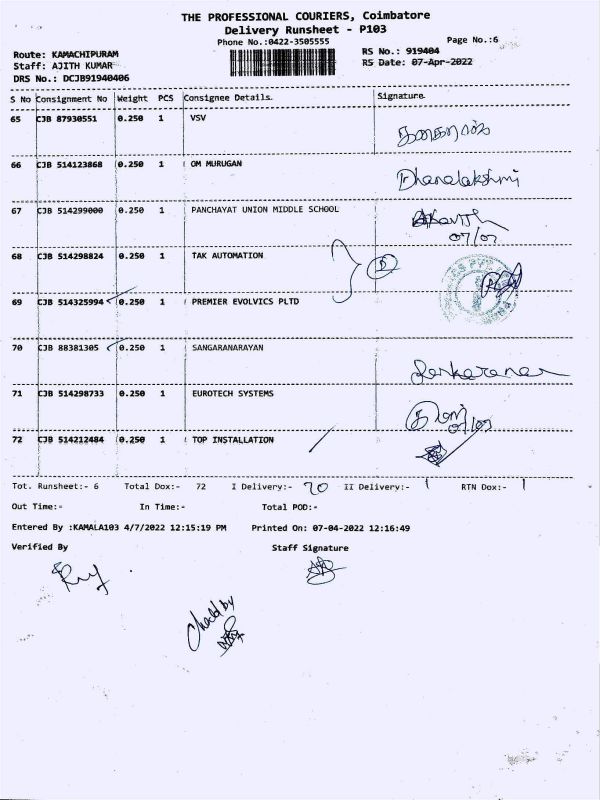 THE PROFESSIONAL COURIERS, Coimbatore
Delivery Runsheet - P103
Phone No.:0422-3505555
Page No.:6
Route: KAMACHIPURAM
RS No.: 919404
Staff: AJITH KUMAR
RS Date: 07-Apr-2022
DRS No.: DCJB91940406
S No Consignment No Weight PCS Consignee Details. Signature.
65 CJB 87930551 0.250 1 VSV
66 CJB 514123868 0.250 1 OM MURUGAN Dhanalakshmi
67 CJB 514299000 0.250 1 PANCHAYAT UNION MIDDLE SCHOOL
07/07
68 CJB 514298824 0.250 1 TAK AUTOMATION
69 CJB 514325994 0.250 1 PREMIER EVOLVICS PLTD
70 CJB 88381305 0.250 1 SANGARANARAYAN
71 CJB 514298733 0.250 1 EUROTECH SYSTEMS
72 CJB 514212484 0.250 1 TOP INSTALLATION
Tot. Runsheet:- 6 Total Dox:- 72 I Delivery:- 70 II Delivery:- 1 RTN Dox:- 1
Out Time:- In Time:- Total POD:-
Entered By :KAMALA103 4/7/2022 12:15:19 PM Printed On: 07-04-2022 12:16:49
Verified By Staff Signature